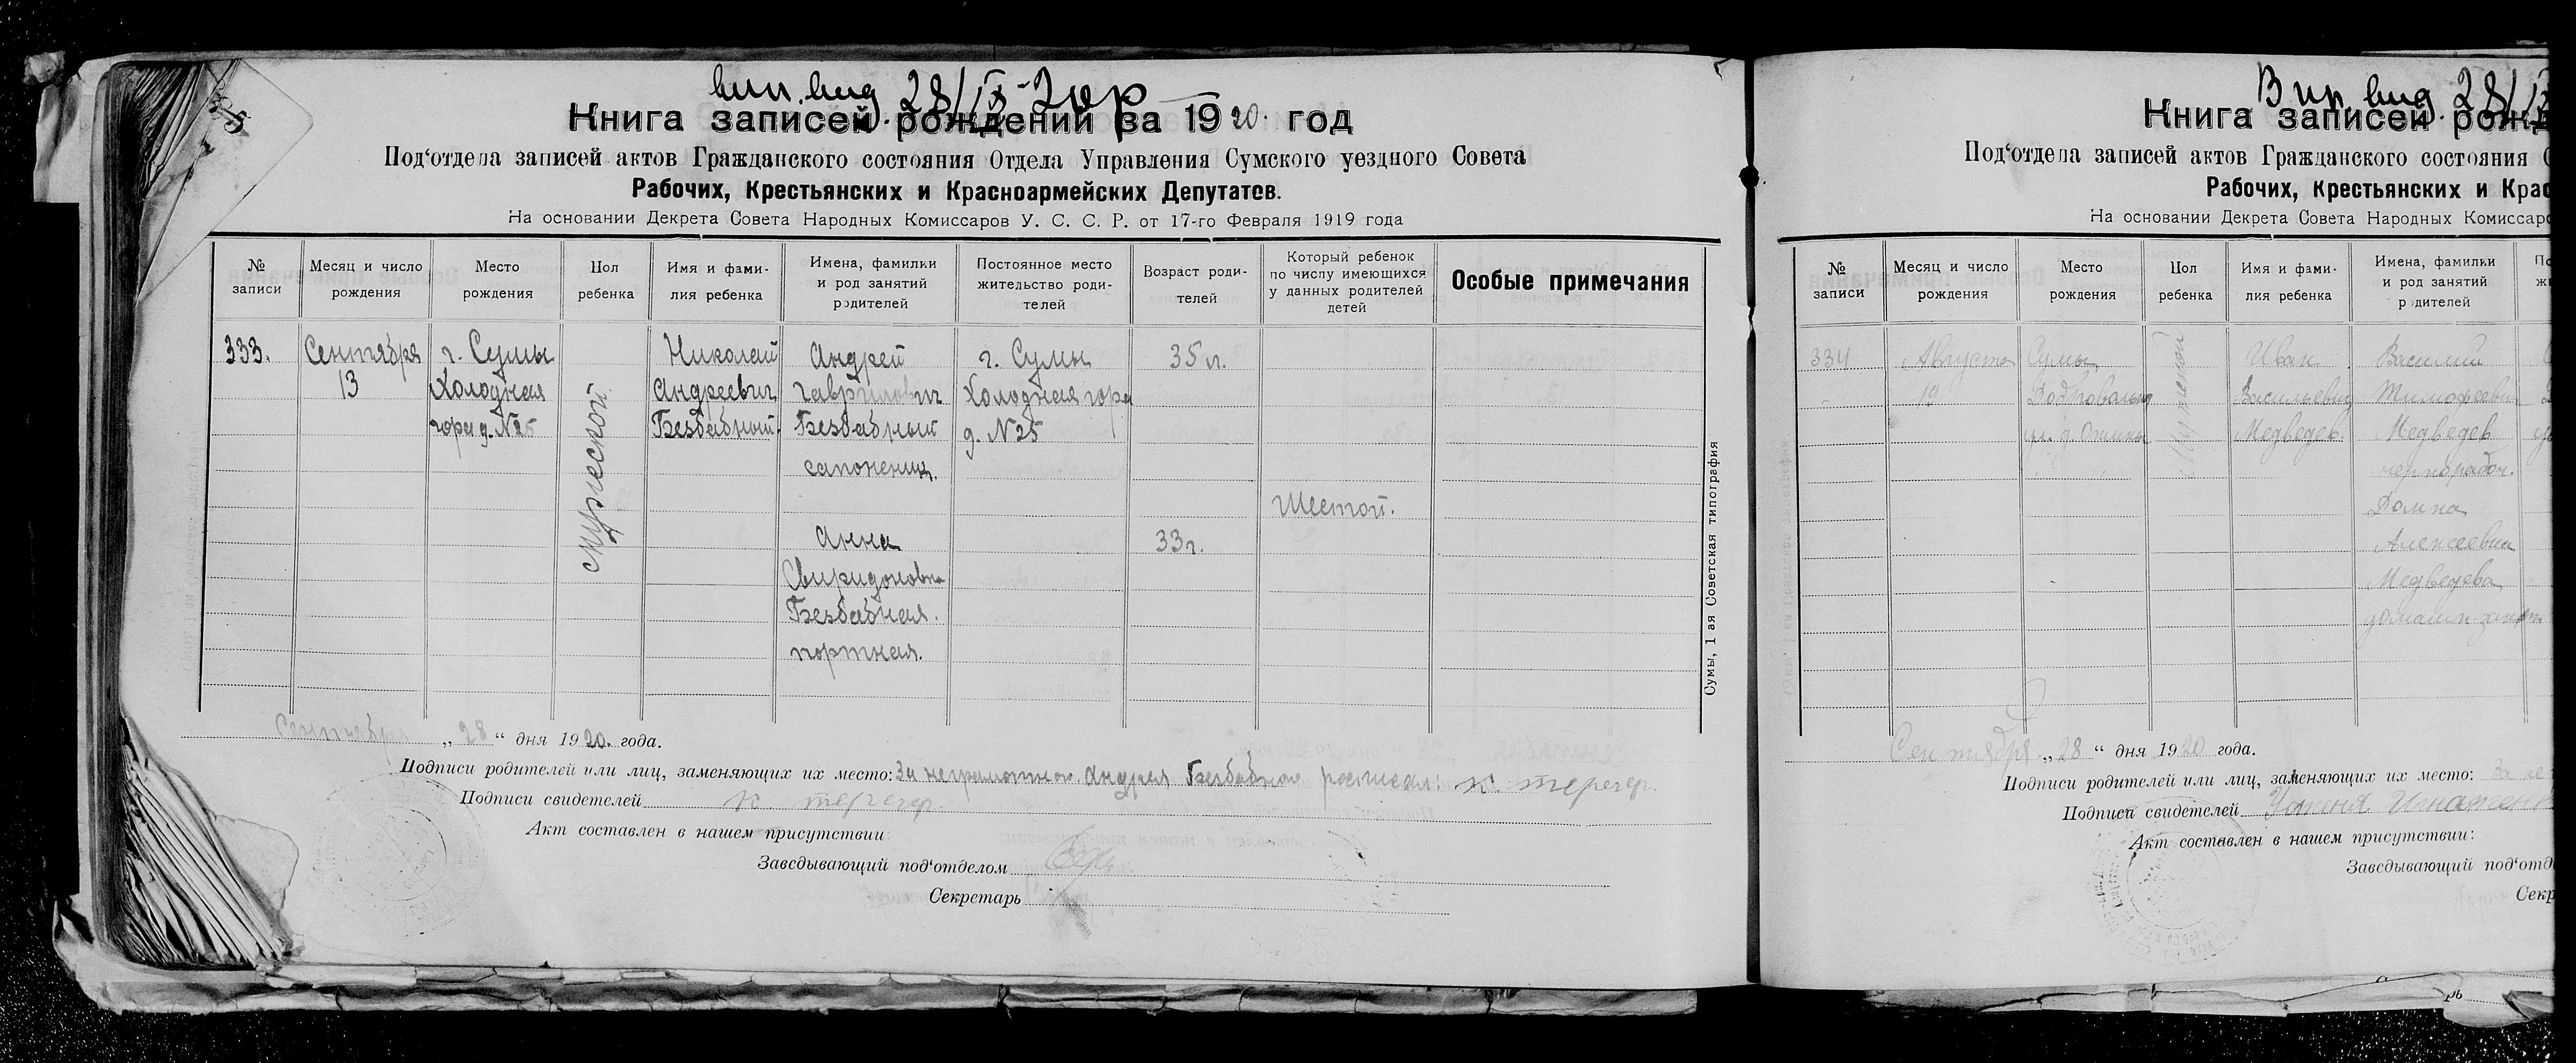 вип. вид. 28/IX-20 р
Книга записей рождений за 1920. год
Под‘отдела записей актов Гражданского состояния Отдела Управления Сумского уездного Совета
Рабочих, Крестьянских и Красноармейских Депутатов.
На основании Декрета Совета Народных Комиссаров У. С. С. Р. от 17-го Февраля 1919 года
№ записи
Месяц и число рождения
Место рождения
Пол ребенка
Имя и фами- лия ребенка
Имена, фамилки и род занятий родителей
Постоянное место жительство роди- телей
Возраст роди- телей
Который ребенок по числу имеющихся у данных родителей детей
Особые примечания
333.
Сентября
13
г. Сумы
Холодная
гора д. №25
мужеской
Николай
Андреевич
Безбабный.
Андрей
Гаврилович
Безбабный
сапожник.
Анна
Свиридоновна
Безбабная.
портная.
г. Сумы
Холодная гора
д. №25
35 л.
33 г.
Шестой.
Сумы, 1 ая Советская типография
Сентября „28“ дня 1920. года.
Подписи родителей или лиц, заменяющих их место: За неграмотного Андрея Безбабного
Подписи свидетелей
Акт составлен в нашем присутствии
Заведывающий под‘отделом
Секретарь
Вип. вид. 28/IX
Книга записей рожд
Под‘отдела записей актов Гражданского состояния О
Рабочих, Крестьянских и Крас
На основании Декрета Совета Народных Комиссаро
№ записи
Месяц и число рождения
Место рождения
Пол ребенка
Имя и фами- лия ребенка
Имена, фамилки и род занятий родителей
По
жи
334
Августа
19
Сумы
мужеской
Иван
Васильевич
Медведев.
Василий
Тимофеевич
Медведев
чернорабоч.
Домна
Алексеевна
Медведева
домашн.
Сентября „28“ дня 1920 года.
Подписи родителей или лиц, заменяющих их место: За не
Подписи свидетелей
Акт составлен в нашем присутствии:
Заведывающий под‘отд
Секр